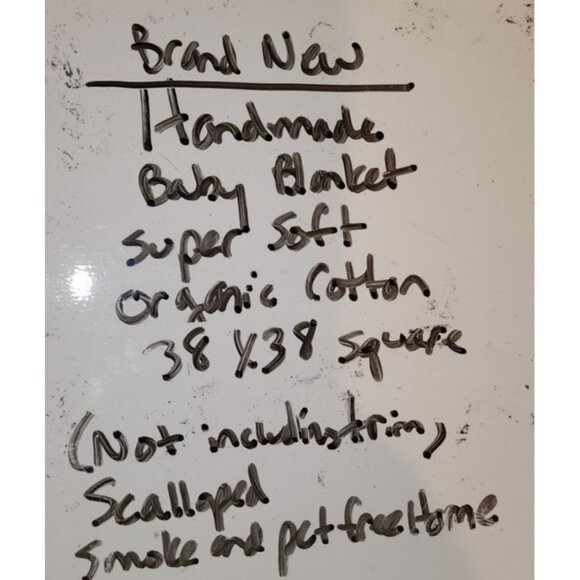 Brand New
Handmade
Baby Blanket
super soft
organic Cotton
38 X 38 square
(Not including trim)
Scalloped
smoke and pet free Home